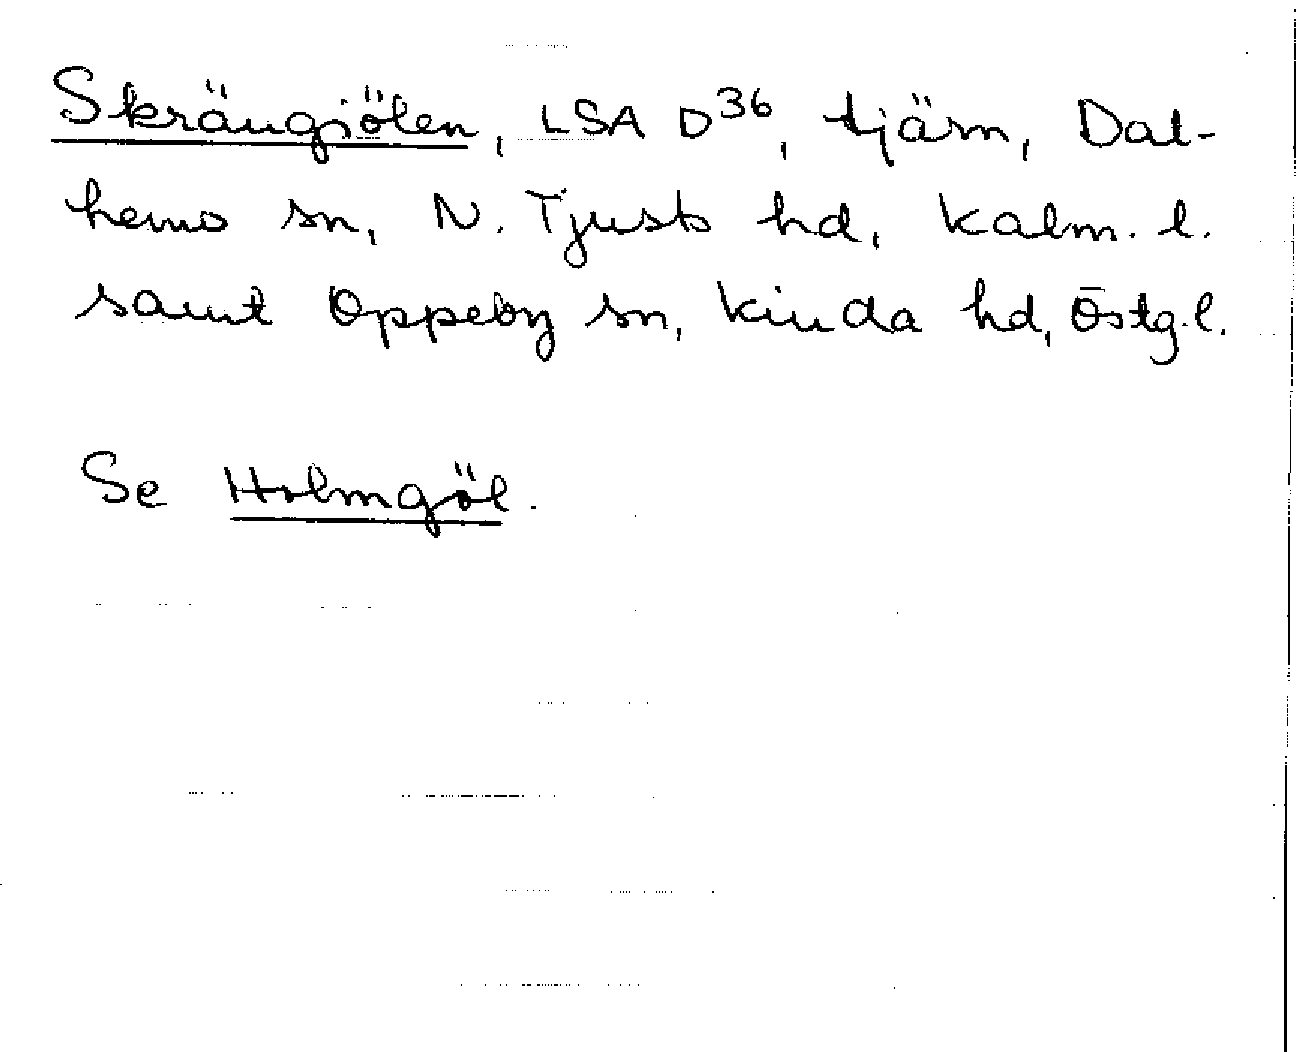 Skrängjölen, LSA D36, tjärn, Dal-
hems sn, N. Tjusts hd, Kalm. l.
samt Oppeby sn, Kinda hd, Östg.l.
Se Holmgöl.